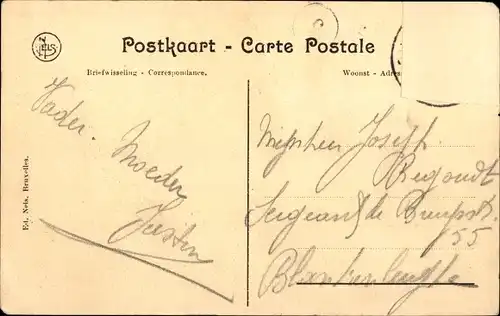 Postkaart - Carte Postale
Briefwisseling - Correspondance.
Woonst - Adres
Vader. Moeder
Justin
Mijnheer Joseph
Sergeant de
55
Blankenberghe
Ed. Nels, Bruxelles.